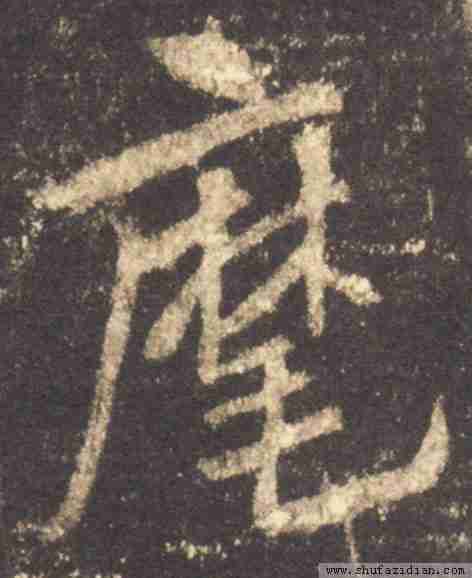 麾
www.shufazidian.com